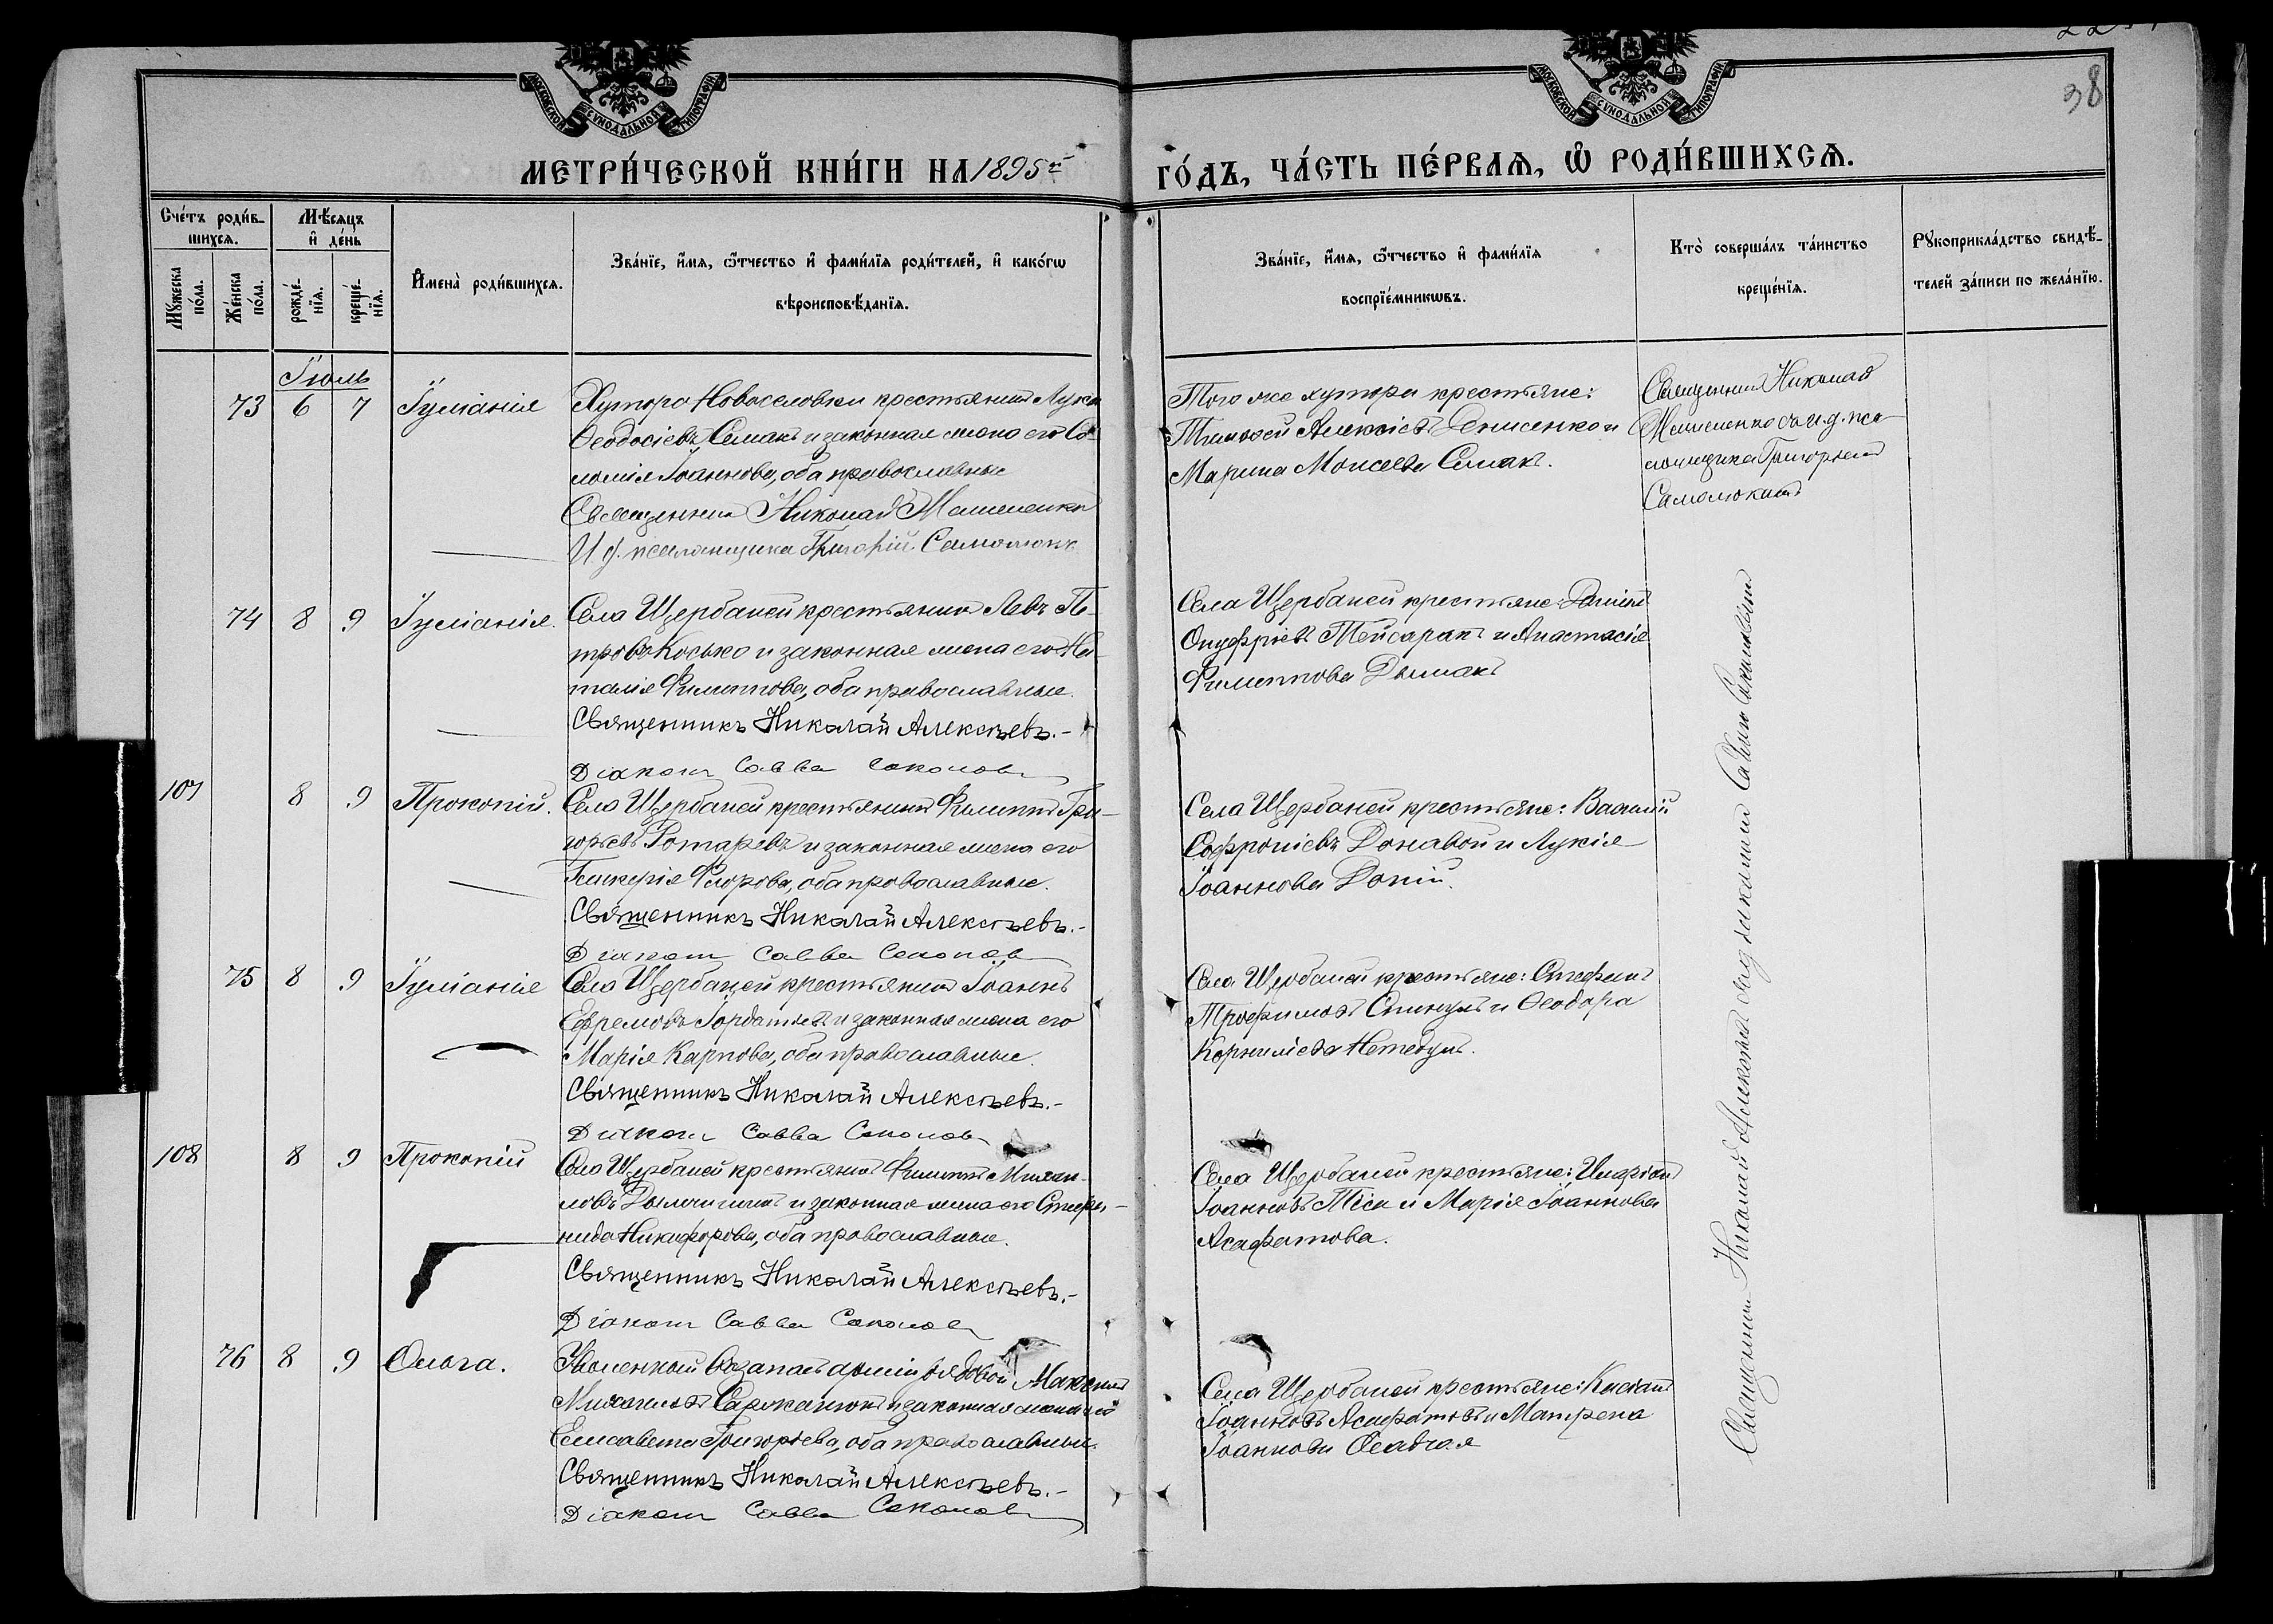 38
МОСКОВСКОЙ СУНОДАЛЬНОЙ ТИПОГРАФІИ
МОСКОВСКОЙ СУНОДАЛЬНОЙ ТИПОГРАФІИ
МЕТРИ́ЧЕСКОЙ КНИ́ГИ НА 1895й
ГО́ДЪ, ЧА́СТЬ ПЕ́РВАѦ, Ѡ҆ РОДИ́ВШИХСѦ.
Сче́тъ роди́в-
шихсѧ.
Мѣ́сѧцъ
и҆ де́нь
Мꙋ́жеска по́ла.
Же́нска по́ла.
рожде́-нїѧ.
креще́-нїѧ.
И҆мена̀ роди́вшихсѧ.
Зва́нїе, и҆́мѧ, ѻ҆́тчество и҆ фами́лїѧ роди́телей, и҆ како́гѡ
вѣроисповѣ́данїѧ.
Зва́нїе, и҆́мѧ, ѻ҆́тчество и҆ фами́лїѧ
воспрїе́мникѡвъ.
Кто̀ соверша́лъ та́инство
креще́нїѧ.
Рꙋкоприкла́дство свидѣ́-
телей за́писи по жела́нїю.
Іюль
73 6 7 Іуліанія Хутора Новоселовки крестьянинъ Лука
Ѳеодосіевъ Семакъ и законная жена его Со-
ломія Іоаннова, оба православные
Священникъ Николай
И. д. псаломщика Григорій Самолюкъ
Того же хутора крестьяне:
Тимоѳей Алексіевъ Денисенко и
Марина Моисеева Семакъ.
Священникъ Николай
съ и. д. пса-
ломщика Григоріемъ
Самолюкомъ
74 8 9 Іуліанія. Села Щербаней крестьянинъ Левъ Пе-
тровъ Косько и законная жена его На-
талія Филиппова, оба православные.
Священникъ Николай Алексѣевъ.-
Діаконъ Савва Соколовъ
Села Щербаней крестьяне: Даніилъ
Онуфріевъ и Анастасія
Филиппова Дымакъ
107 8 9 Прокопій. Села Щербаней крестьянинъ Филиппъ Гри-
горьевъ Ротаревъ и законная жена его
Гликерія Флорова, оба православные.
Священникъ Николай Алексѣевъ.-
Діаконъ Савва Соколовъ
Села Щербаней крестьяне: Василій
Софроніевъ Донавой и Лукія
Іоаннова Доній.
75 8 9 Іуліанія Села Щербаней крестьянинъ Іоаннъ
Ефремовъ и законная жена его
Марія Карпова, оба православные.
Священникъ Николай Алексѣевъ.-
Діаконъ Савва Соколовъ
Села Щербаней крестьяне: Стефанъ
Трофимовъ и Ѳеодора
Корниліева
108 8 9 Прокопій Села Щербаней крестьянинъ Филиппъ Михаи-
ловъ и законная жена его Стефа-
нида Никифорова, оба православные.
Священникъ Николай Алексѣевъ.-
Діаконъ Савва Соколовъ
Села Щербаней крестьяне: Иларіонъ
Іоанновъ Тіса и Марія Іоаннова
Асафатова.
76 8 9 Ольга. Уволенный въ запасъ арміи рядовой Максимъ
Михаиловъ Саржанюкъ и законная жена его
Елисавета Григорьева, оба православные.
Священникъ Николай Алексѣевъ.-
Діаконъ Савва Соколовъ
Села Щербаней крестьяне: Касіанъ
Іоанновъ Асафатовъ и Матрена
Іоаннова Осадчая
Священникъ Николай Алексѣевъ съ діакономъ Саввою Соколовымъ